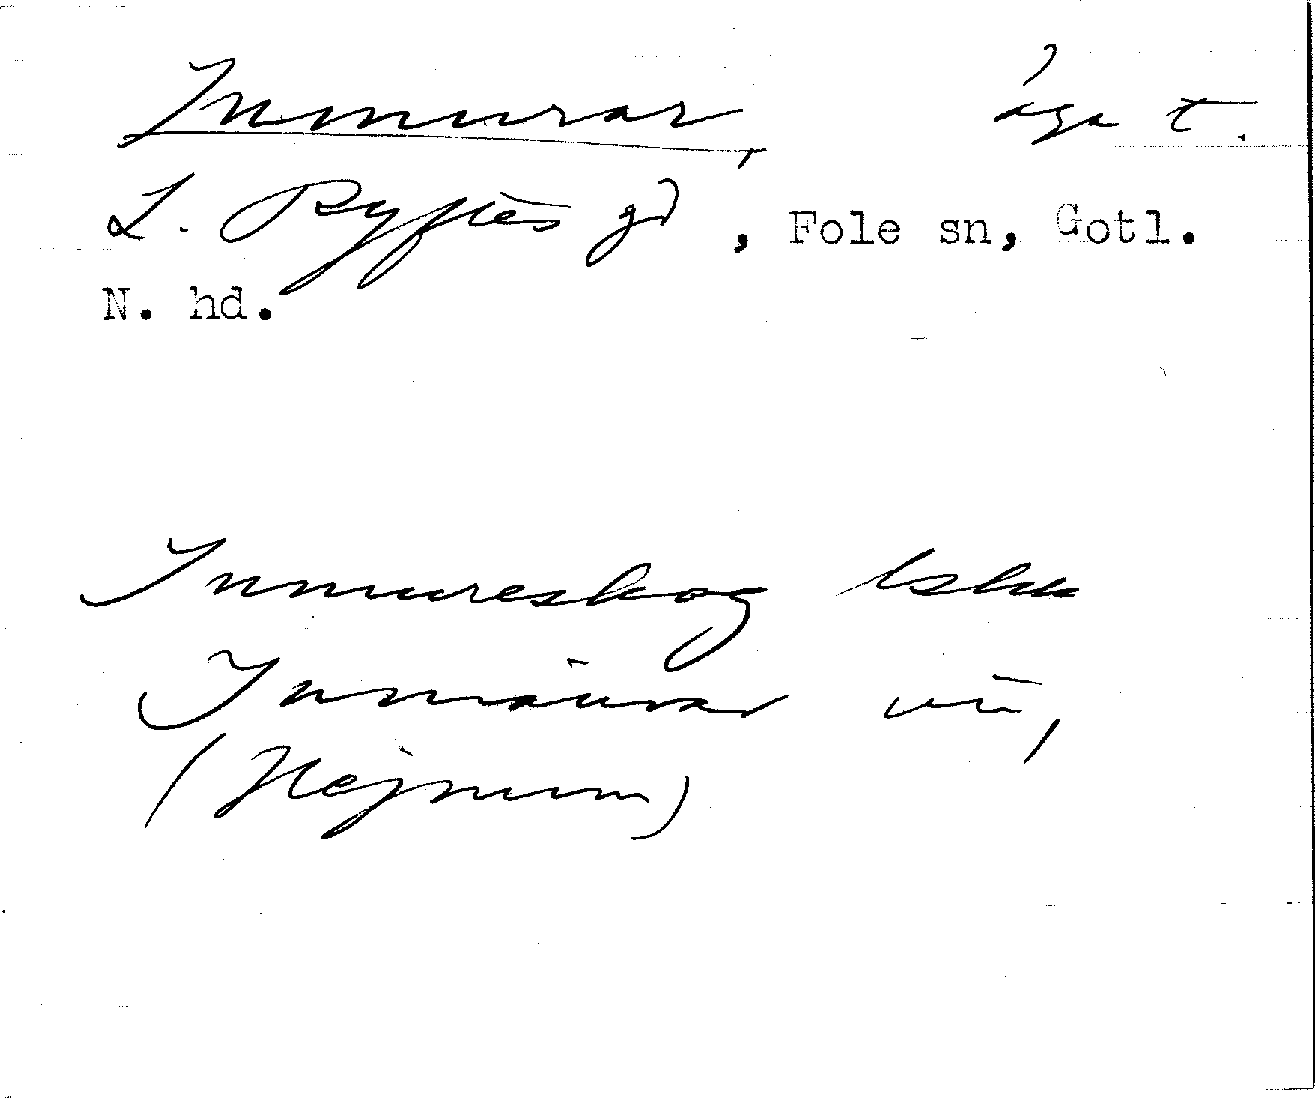 Inmurar, äga t.
L. Ryftes gd, Fole sn, Gotl.
N. hd.
Inmureskog
Inmäurar
(Hejnum)